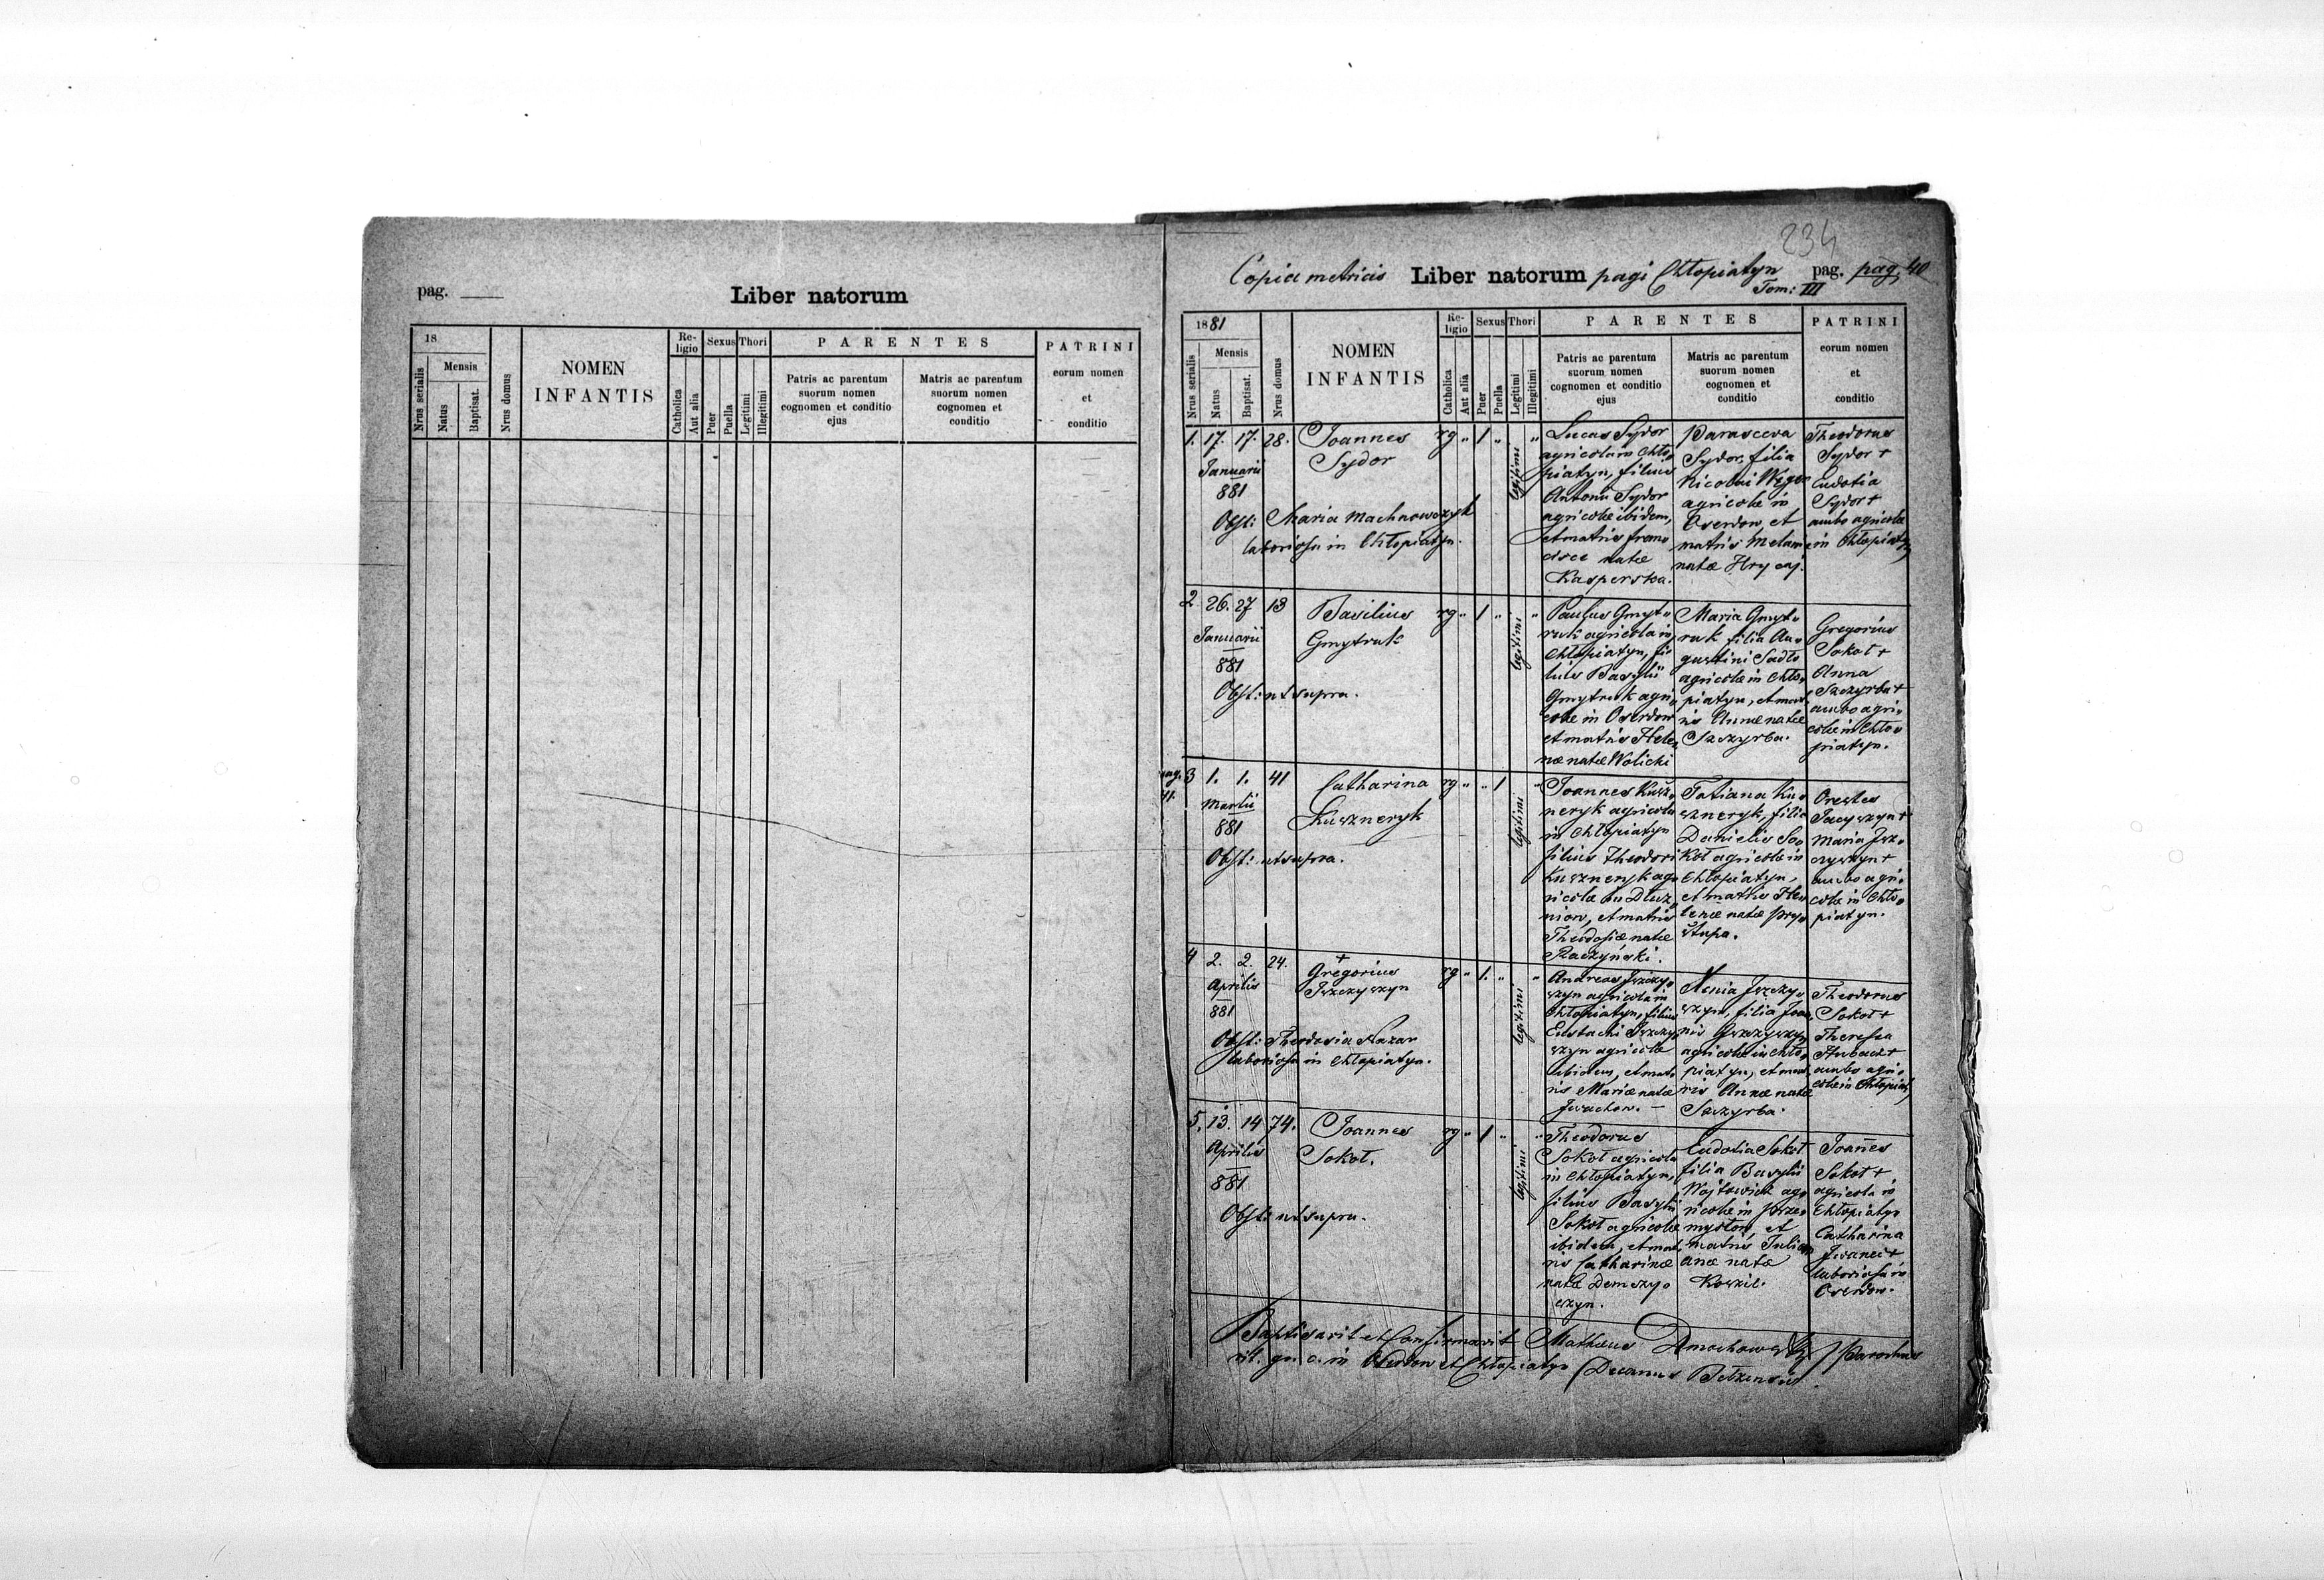 pag.
Liber natorum
18
Mensis
Nrus serialis
Natus
Baptisat.
Nrus domus
NOMEN
INFANTIS
Re-
ligio
Catholica
Aut alia
Sexus
Puer
Puella
Thori
Legitimi
Illegitimi
PARENTES
Patris ac parentum
suorum nomen
cognomen et conditio
ejus
Matris ac parentum
suorum nomen
cognomen et
conditio
PATRINI
eorum nomen
et
conditio
234
Copia metricis Liber natorum pagi Chłopiatyn pag. pag. 40
Tom: III
1881
Mensis
Nrus serialis
Natus
Baptisat.
Nrus domus
NOMEN
INFANTIS
Re-
ligio
Catholica
Aut alia
Sexus
Puer
Puella
Thori
Legitimi
Illegitimi
PARENTES
Patris ac parentum
suorum nomen
cognomen et conditio
ejus
Matris ac parentum
suorum nomen
cognomen et
conditio
PATRINI
eorum nomen
et
conditio
1. 17. 17. 28.
Januarii
881
Joannes
Sydor
rg " 1 " "
legitimi
Obst: Maria Machnowczyk
laboriosa in Chłopiatyn.
Lucas Sydor
agricola in Chło,
piatyn, filius
Antonii Sydor
agricolæ ibidem,
et matris Franc
iscæ natæ
Kasperska.
Parasceva
Sydor, filia
Nicolai
agricolæ in
Oserdow, et
matris Melan
natæ Hrycaj.
Theodorus
Sydor +
Eudotia
Sydor +
ambo agricolæ
in Chłopiatyn
2 26. 27 13
Januarii
881
Basilius
Gmytruk
rg " 1 " "
legitimi
Obst: ut supra.
Paulus Gmyt,
ruk agricola in
Chłopiatyn, fi
lius Basylii
Gmytruk agri,
colæ in Oserdow
et matris Hele,
næ natæ Wolicki
Maria Gmyt,
ruk filia Au,
gustini Sadło
agricolæ in Chło,
piatyn, et mat,
ris Annæ natæ
Szczyrba.
Gregorius
Sokoł +
Anna
Szczyrba +
ambo agri,
colæ in Chło,
piatyn.
pag.
41.
3 1. 1. 41
Martii
881
Catharina
Kuszneryk
rg " " 1 "
legitimi
Obst: ut supra.
Joannes Kusz,
neryk agricola
in Chłopiatyn
filius Theodori
Kuszneryk ag,
ricolæ in Dłuż,
niow, et matris
Theodosiæ natæ
Raczyński.
Tatiana Ku,
szneryk, filia
Danielis So,
koł agricolæ in
Chłopiatyn,
et matris He,
lenæ natæ Pry,
stupa.
Orestes
Jacyszyn +
Maria Jsz,
czyszyn +
ambo agri,
colæ in Chło,
piatyn.
4 2. 2. 24.
Aprilis
881
+
Gregorius
Iszczyszyn
rg " 1. " "
legitimi
Obst: Theodosia Nazar
laboriosa in Chłopiatyn.
Andreas Jszczy,
szyn agricola in
Chłopiatyn, filius
Eustachi Iszczy,
szyn agricolæ
ibidem, et mat,
ris Mariæ natæ
Jwachow. —
Xenia Jszczy,
szyn, filia Joan,
nis
agricolæ in Chło,
piatyn, et mat,
ris Annæ natæ
Szczyrba.
Theodorus
Sokoł +
Theresia
ambo agri,
colæ in Chłopiat,
5. 13. 14 74.
Aprilis
881
Joannes
Sokoł.
rg " 1 " "
legitimi
Obst: ut supra.
Theodorus
Sokoł agricola
in Chłopiatyn,
filius Basylii
Sokoł agricolæ
ibidem, et mat,
ris Catharinæ
natæ Demczy,
szyn.
Eudotia Sokoł
filia Basylii
Wojtowicz ag,
ricolæ in Prze,
mysłow et
matris Juli,
anæ natæ
Koszil.
Joanes
Sokoł +
agricola in
Chłopiatyn
Catharina
Jwanec +
laboriosa in
Oserdow.
Baptisavit et confirmavit Mathæus Dmochowski Parochus
rit. gr. c. in Oserdow et Chłopiatyn Decanus Bełzensis.